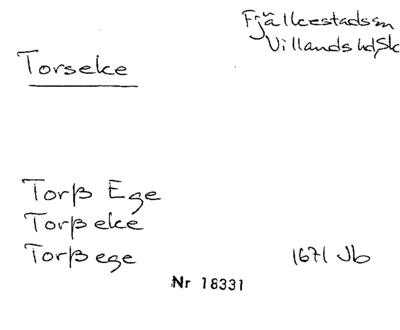 Fjälkestads sn
Villands hd, Sk
Torseke
Torβ Ege
Torβ eke
Torβ ege 1671 Jb
Nr 18331